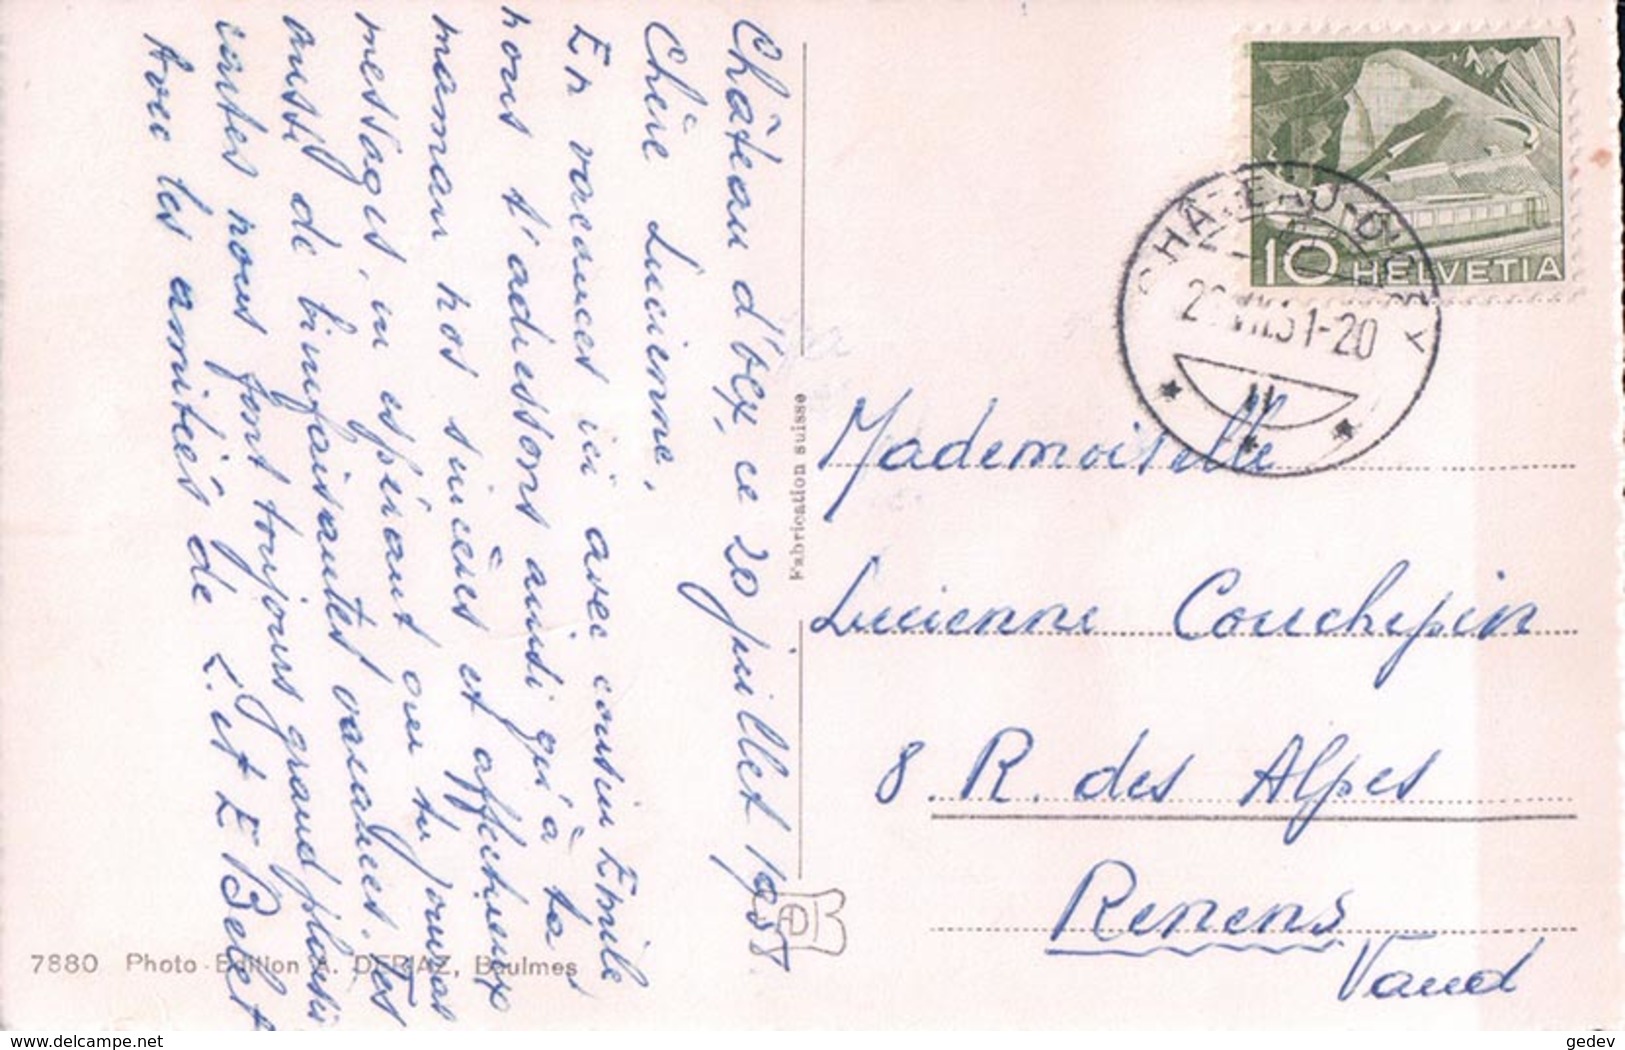 Château d'Oex, ce 20 juillet 1951
Chère Lucienne,
En vacances ici avec cousin Emile
nous t'adressons ainsi qu'à ta
maman nos sincères et affectueux
messages, en espérant que tu jouiras
aussi de bienfaisantes vacances. Tes
cartes nous font toujours grand plaisir
Avec les amitiés de L. et E Belet
Fabrication suisse
7880 Photo-Edition A. DERIAZ, Baulmes
10 HELVETIA
CHÂTEAU-D'OEX
VII.51-20
Mademoiselle
Lucienne Couchepin
8. R. des Alpes
Renens
Vaud
www.delcampe.net
gedev